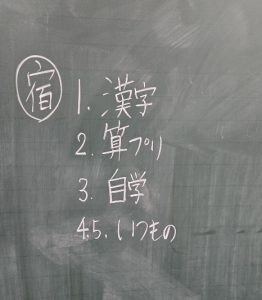 宿 1. 漢字
2. 算プリ
3. 自学
4.5. いつもの